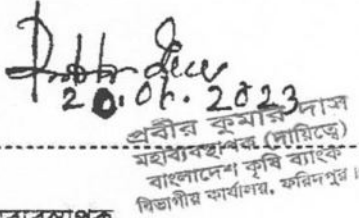 20.06.2023
প্রবীর কুমার দাস
মহাব্যবস্থাপক (দায়িত্বে)
বাংলাদেশ কৃষি ব্যাংক
বিভাগীয় কার্যালয়, ফরিদপুর।